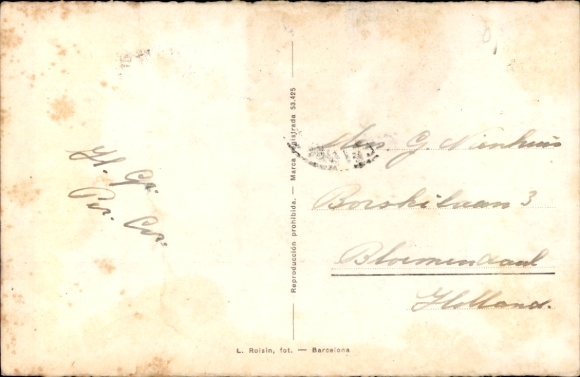 H. Gr.
Reproducción prohibida. — Marca registrada 53.425
G. Nienhuis
Borskilaan 3
Bloemendaal
Holland.
L. Roisin, fot. — Barcelona